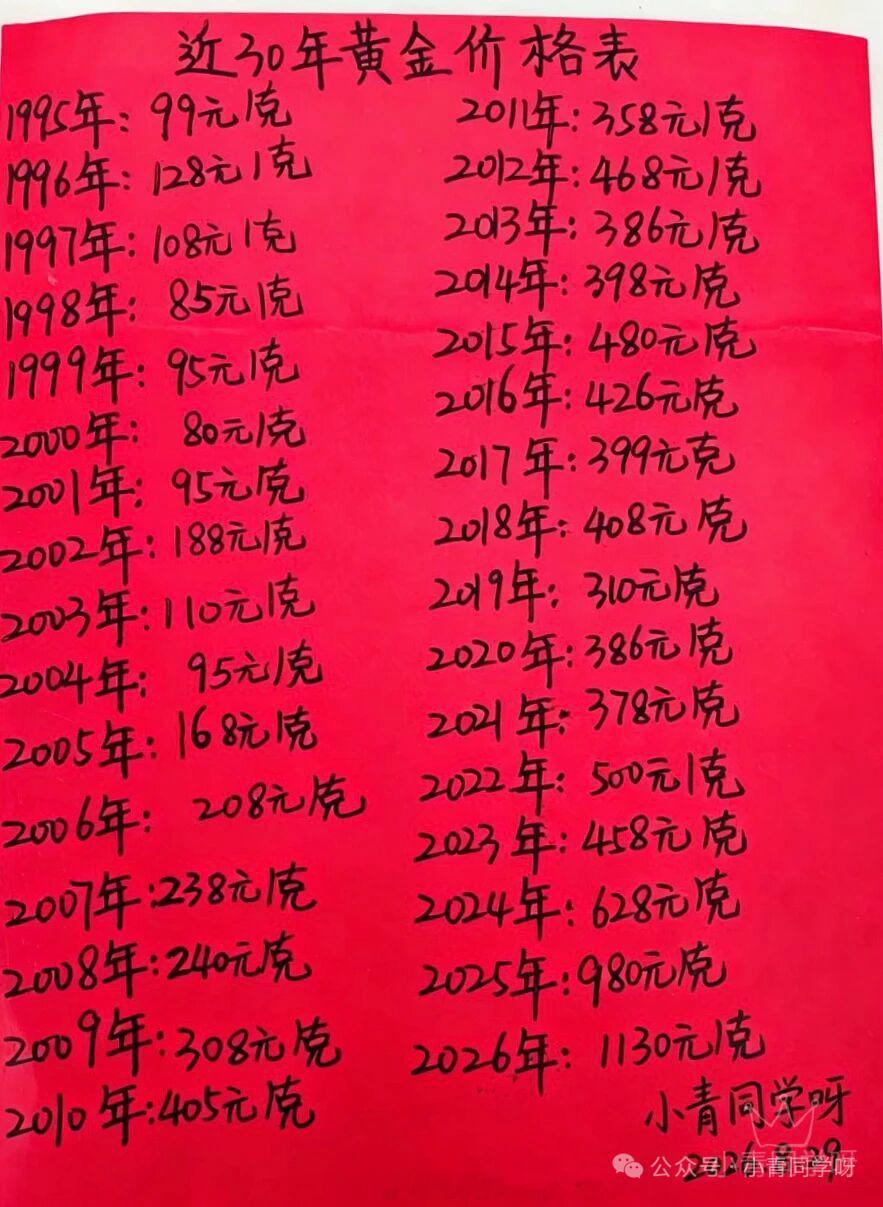 近30年黄金价格表
1995年: 99元/克
1996年: 128元/克
1997年: 108元/克
1998年: 85元/克
1999年: 95元/克
2000年: 80元/克
2001年: 95元/克
2002年: 188元/克
2003年: 110元/克
2004年: 95元/克
2005年: 168元/克
2006年: 208元/克
2007年: 238元/克
2008年: 240元/克
2009年: 308元/克
2010年: 405元/克
2011年: 358元/克
2012年: 468元/克
2013年: 386元/克
2014年: 398元/克
2015年: 480元/克
2016年: 426元/克
2017年: 399元/克
2018年: 408元/克
2019年: 310元/克
2020年: 386元/克
2021年: 378元/克
2022年: 500元/克
2023年: 458元/克
2024年: 628元/克
2025年: 980元/克
2026年: 1130元/克
小青同学呀
小青同学呀
公众号·小青同学呀